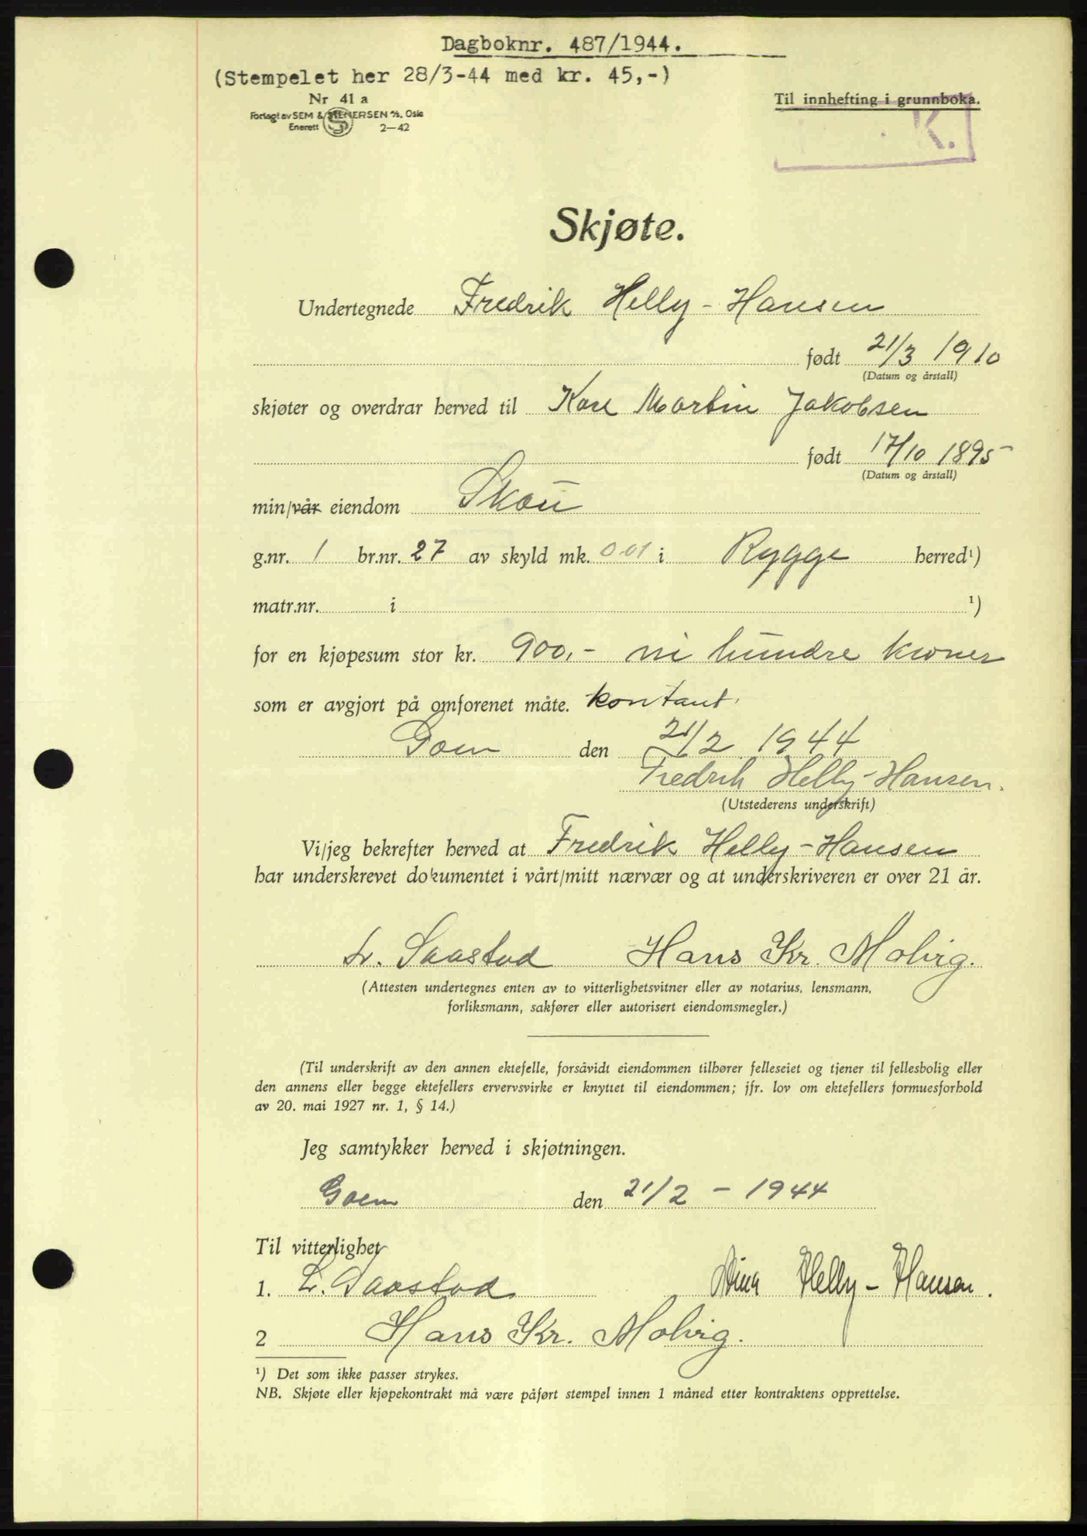 Dagboknr. 487/1944.
(Stempelet her 28/3-44 med kr. 45,-)
Nr 41 a
Forlagt av SEM & STENERSEN A/S, Oslo
Enerett 2-42
Til innhefting i grunnboka.
K.
Skjøte.
Undertegnede Fredrik Helly-Hansen
født 21/3 1910
(Datum og årstall)
skjøter og overdrar herved til Kare Martin Jakobsen
født 17/10 1895
(Datum og årstall)
min/vår eiendom Skau
g.nr. 1 br.nr. 27 av skyld mk. 0.01 i Rygge herred¹)
matr.nr. i ¹)
for en kjøpesum stor kr. 900,- ni hundre kroner
som er avgjort på omforenet måte. kontant.
Goen den 21/2 1944
Fredrik Helly-Hansen.
(Utstederens underskrift)
Vi/jeg bekrefter herved at Fredrik Helly-Hansen
har underskrevet dokumentet i vårt/mitt nærvær og at underskriveren er over 21 år.
L. Saastad Hans Kr. Molvig.
(Attesten undertegnes enten av to vitterlighetsvitner eller av notarius, lensmann,
forliksmann, sakfører eller autorisert eiendomsmegler.)
(Til underskrift av den annen ektefelle, forsåvidt eiendommen tilhører felleseiet og tjener til fellesbolig eller
den annens eller begge ektefellers ervervsvirke er knyttet til eiendommen; jfr. lov om ektefellers formuesforhold
av 20. mai 1927 nr. 1, § 14.)
Jeg samtykker herved i skjøtningen.
Goen den 21/2 - 1944
Til vitterlighet
1. L. Saastad Helly-Hansen.
2 Hans Kr. Molvig.
¹) Det som ikke passer strykes.
NB. Skjøte eller kjøpekontrakt må være påført stempel innen 1 måned etter kontraktens opprettelse.